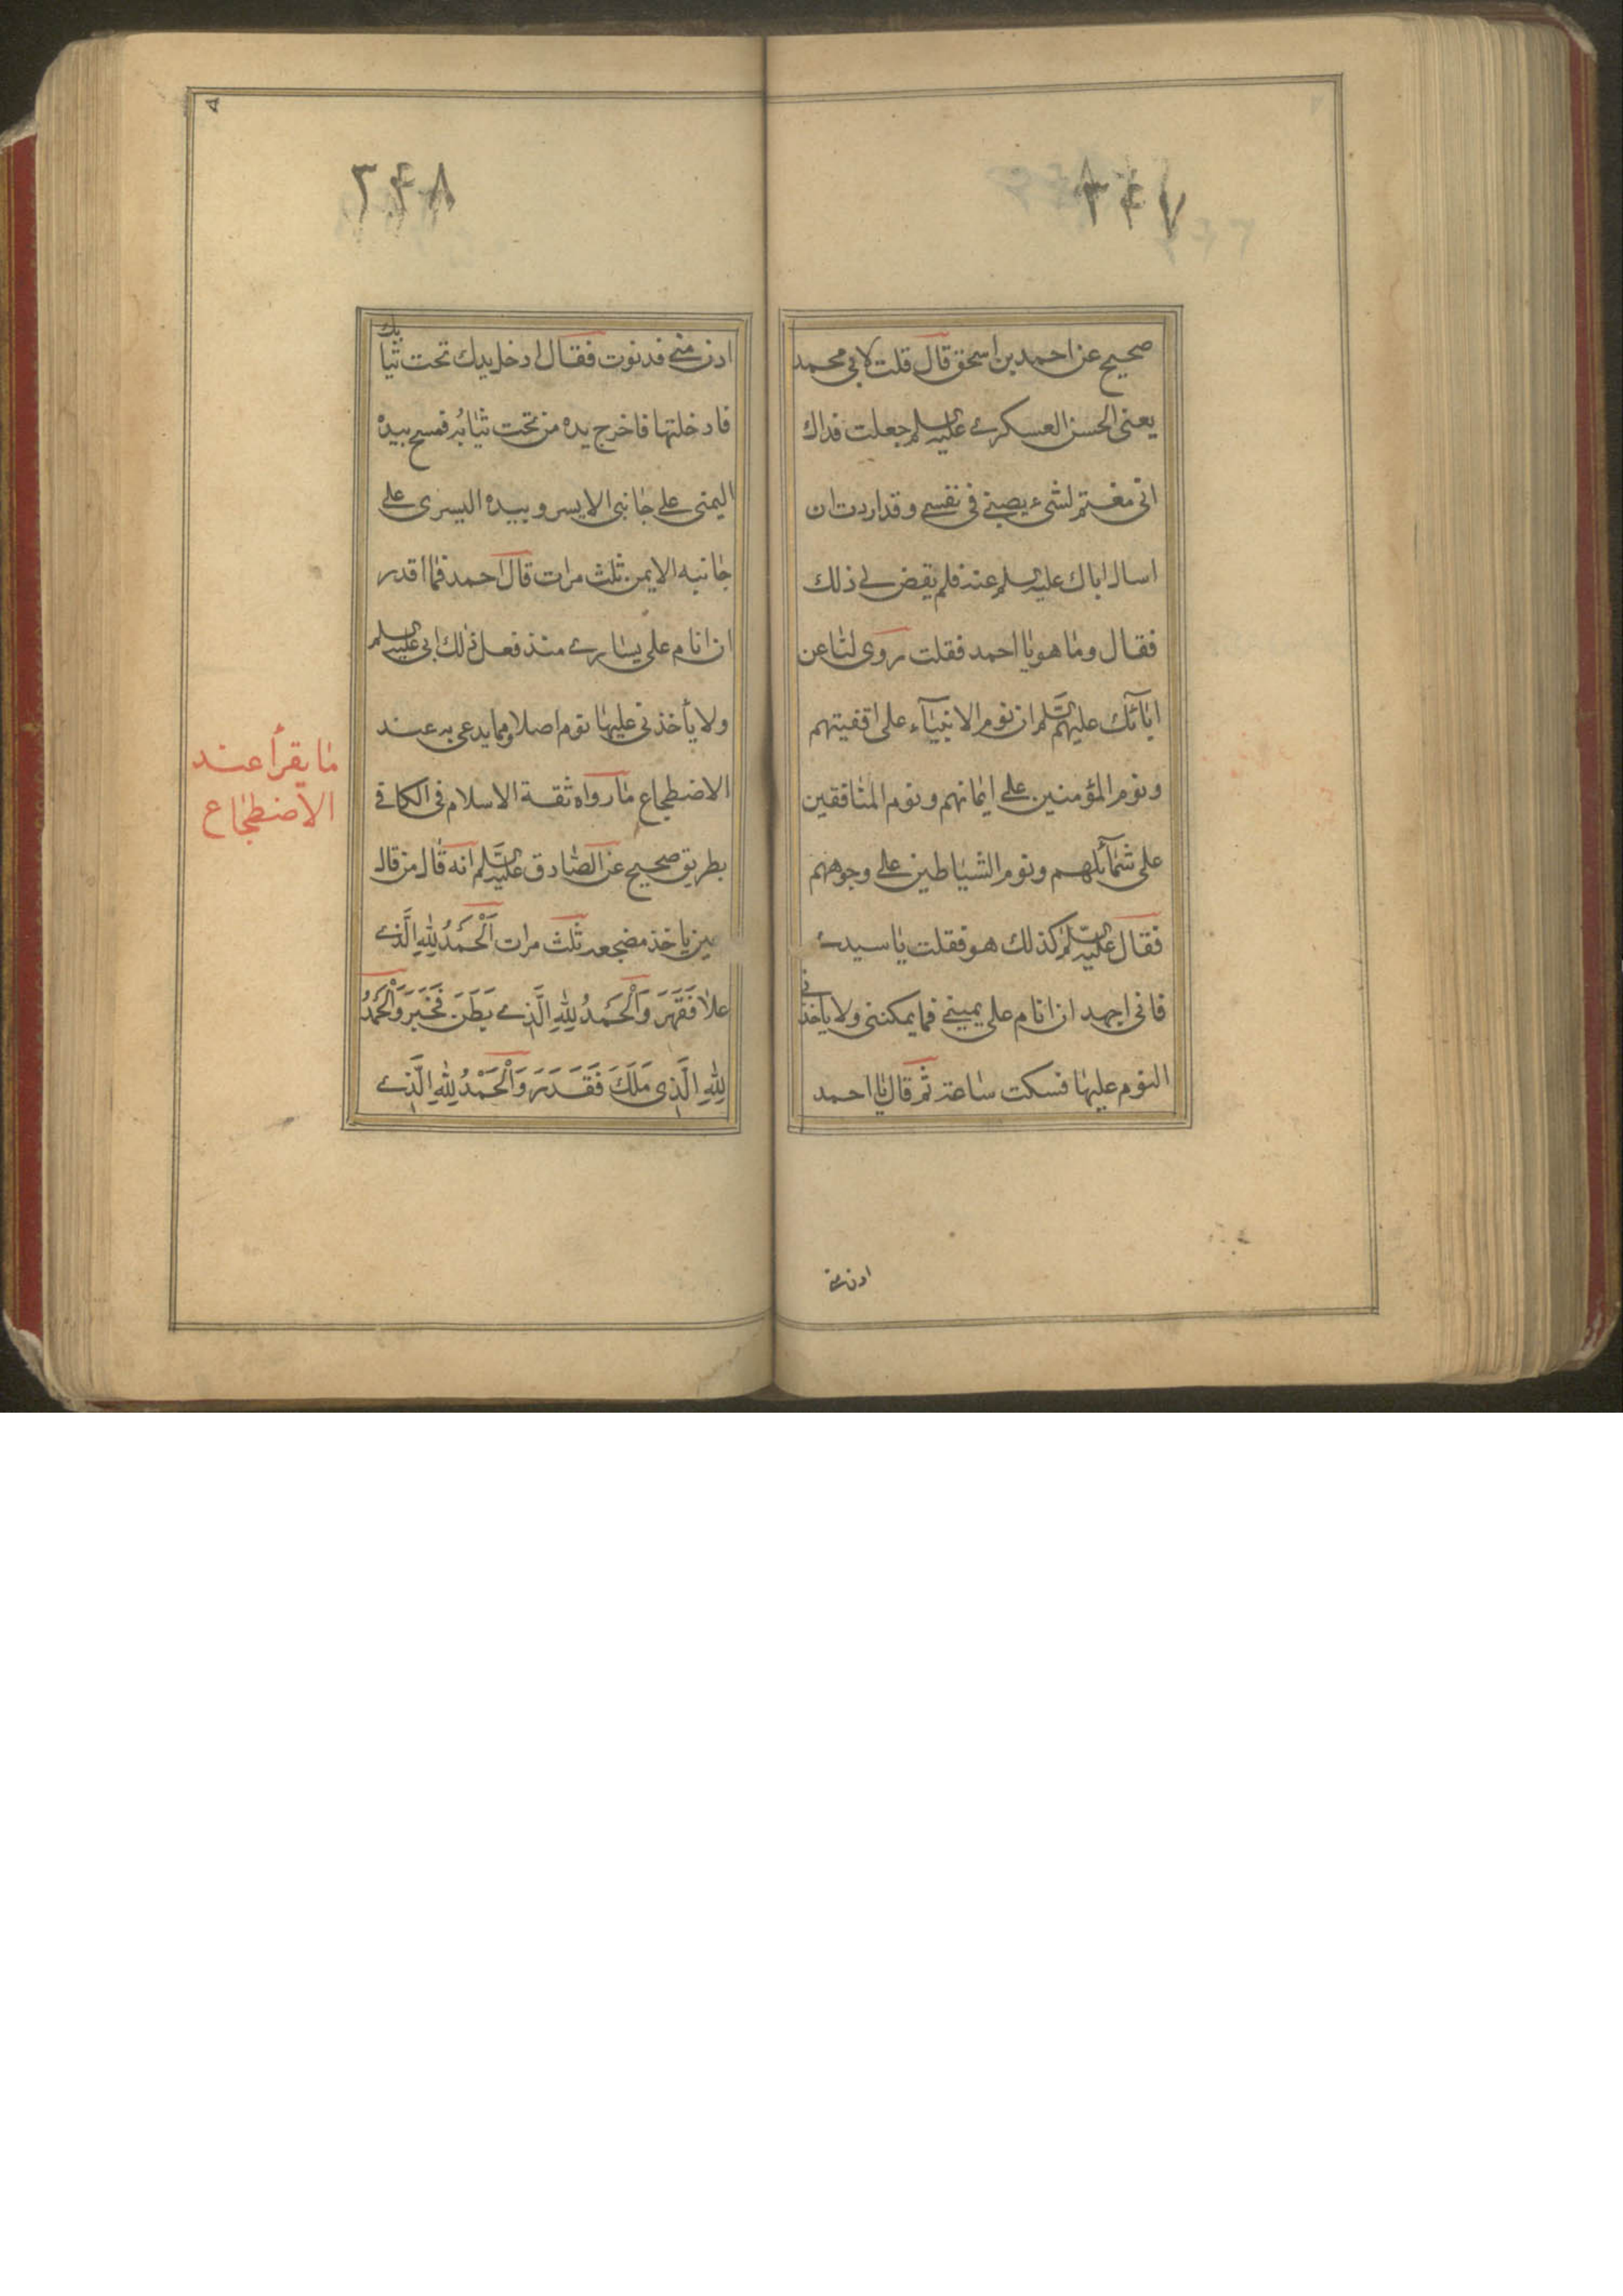 ٣٤٧
صحيح عن احمد بن اسحق قال قلت لابي محمد
يعنى الحسن العسكرى عليه السلم جعلت فداك
انى مغتم لشىء يصيبنى فى نفسى وقد اردت ان
اسال اباك عليه السلم عنه فلم يقض لى ذلك
فقال وما هو يا احمد فقلت روى لنا عن
ابائك عليهم السلم ان نوم الانبياء على اقفيتهم
ونوم المؤمنين على ايمانهم ونوم المنافقين
على شمائلهم ونوم الشياطين على وجوههم
فقال عليه السلم كذلك هو فقلت يا سيدى
فانى اجهد ان انام على يمينى فما يمكننى ولا ياخذنى
النوم عليها فسكت ساعة ثم قال يا احمد
ادن منى
٣٤٨
ادن منى فدنوت فقال ادخل يدك تحت ثيابك
فادخلتها فاخرج يده من تحت ثيابه فمسح بيده
اليمنى على جانبى الايسر وبيده اليسرى على
جانبه الايمن ثلث مرات قال احمد فما اقدر
ان انام على يسارى منذ فعل ذلك ابى عليه السلم
ولا يأخذنى عليها نوم اصلا ومما يدعى به عند
الاضطجاع ما رواه ثقة الاسلام فى الكافى
بطريق صحيح عن الصادق عليه السلم انه قال من قال
حين ياخذ مضجعه ثلث مرات اَلْحَمْدُ لِلّٰهِ الَّذى
علا فَقَهَرَ وَالْحَمْدُ لِلّٰهِ الَّذى بَطَنَ فَخَبَرَ وَالْحَمْدُ
لِلّٰهِ الَّذى مَلَكَ فَقَدَرَ وَالْحَمْدُ لِلّٰهِ الَّذى
ما يقرأ عند
الاضطجاع